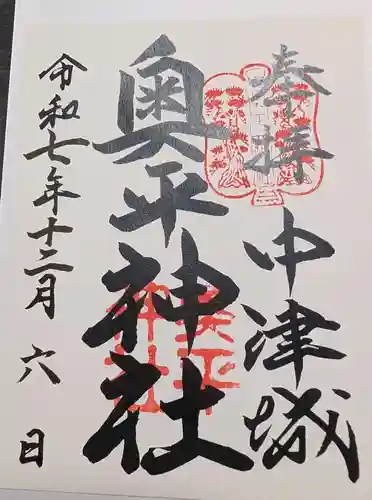 奉拝 中津城
奥平神社
令和七年十二月六日
奥平
神社